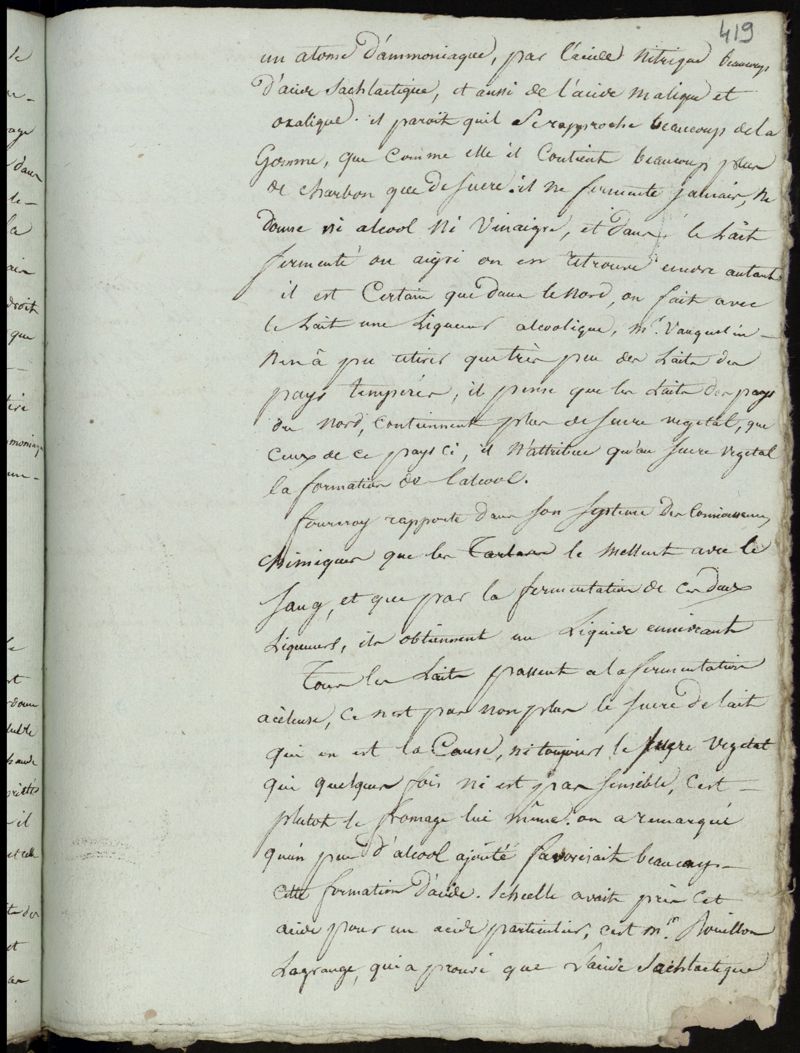 419
un atome d'ammoniaque, par l'acide Nitrique beaucoup
d'acide Sachlactique, et aussi de l'acide malique et
oxalique. il paroit quil Se rapproche beaucoup de la
Gomme, que comme elle il Contient beaucoup plus
de charbon que de sucre. il ne fermente jamais, Ne
donne ni alcool Ni Vinaigre, et dans le Lait
fermenté ou aigri on en retrouve encore autant
il est Certain que dans le Nord, on fait avec
le Lait une Liqueur alcoolique, mr. Vauquelin
N'en à pu retirer que très peu des Laits des
pays tempérés, il pense que les Laits des pays
du Nord, contiennent plus de sucre vegetal, que
Ceux de ce pays ci, il N'attribue qu'au sucre vegetal
la formation de l'alcool.
fourcroy rapporte dans Son Systeme Des Connaissances
chimiques que les Tartares le Mettent avec le
Sang, et que par la fermentation de ces deux
Liqueurs, ils obtiennent un Liquide ennivrant
Tous les Laits passent a la fermentation
aceteuse, ce n'est pas non plus le sucre de lait
qui en est la Cause, ni toujours le sucre vegetal
qui quelques fois ni est pas sensible, c'est
plutot le fromage lui même. on a remarqué
qu'un peu d'alcool ajouté favorisait beaucoup
cette formation d'acide. Scheelle avait pris Cet
acide pour un acide particulier, c'est mr. Bouillon
Lagrange, qui a prouvé que l'acide Sachlactique